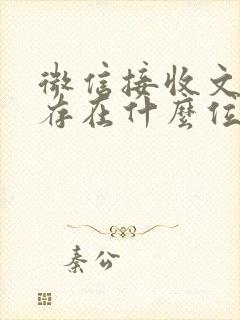 微信接收文
存在什麼位
秦公